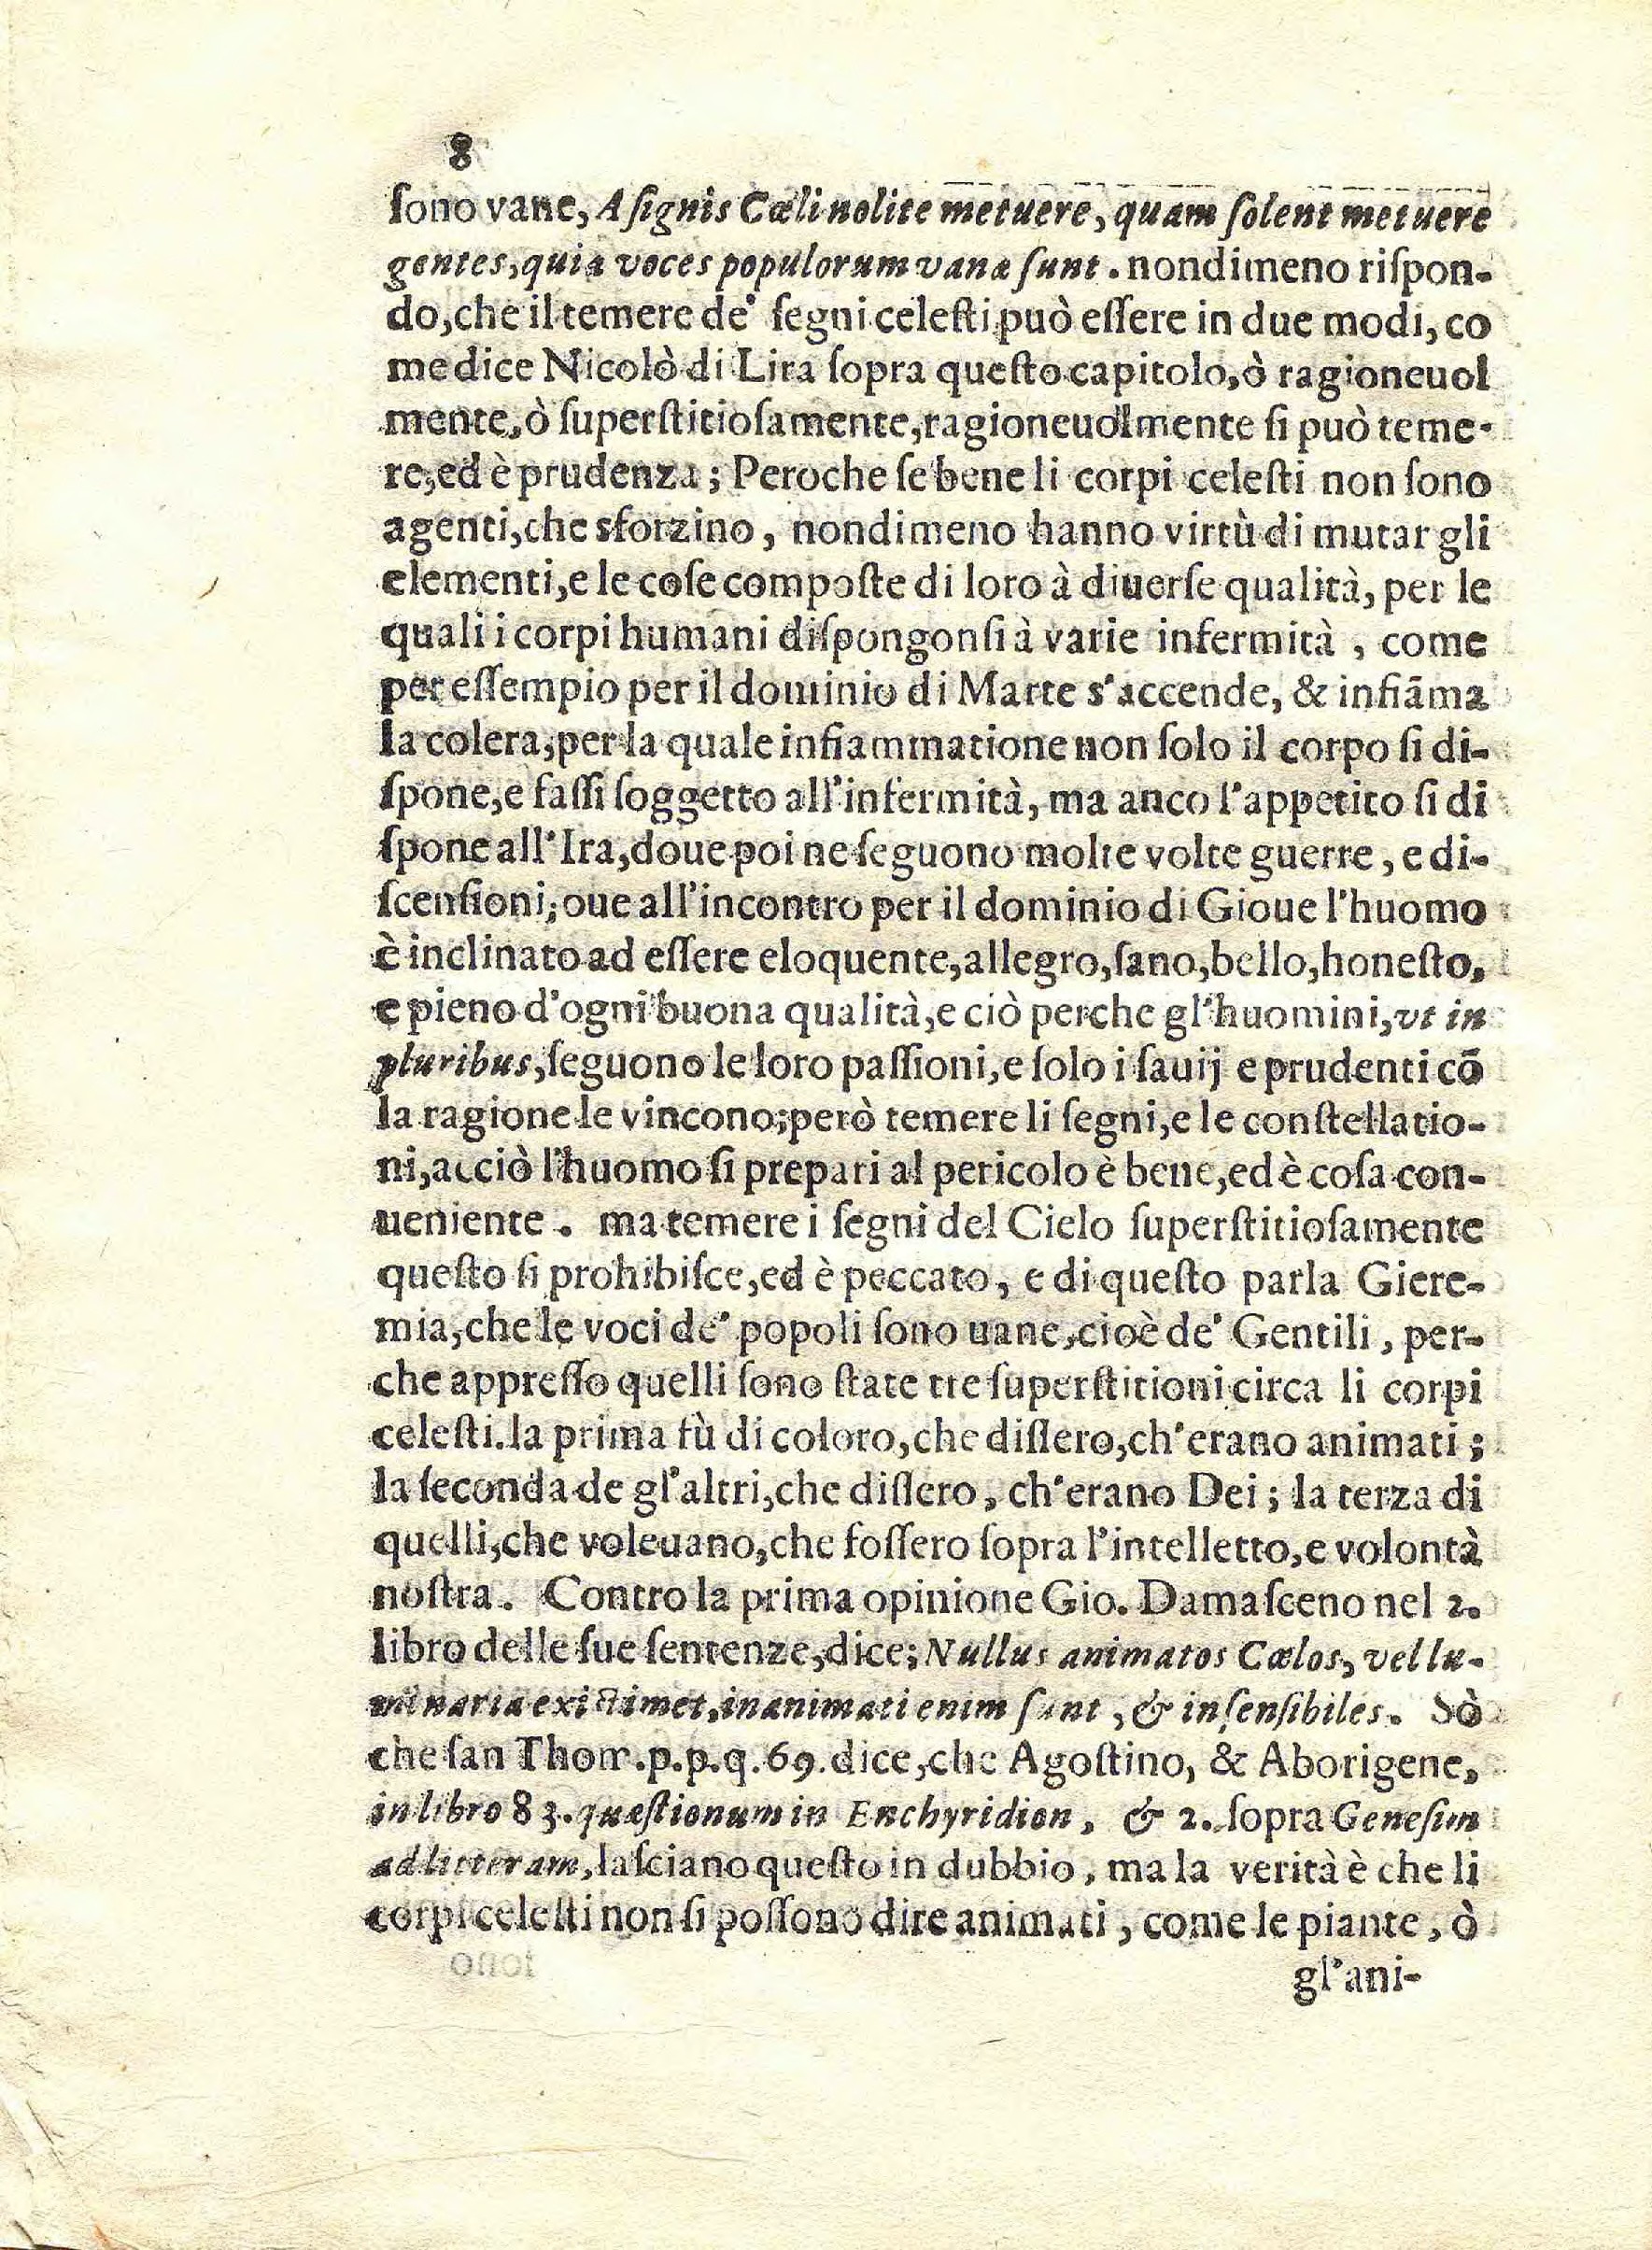 8
ſono vane, A ſignis Cæli nolite metuere, quam ſolent metuere
gentes, quia voces populorum vanæ ſunt. nondimeno riſpon-
do, che il temere de' ſegni celeſti può eſſere in due modi, co
me dice Nicolò di Lira ſopra queſto capitolo, ò ragioneuol
mente, ò ſuperſtitioſamente, ragioneuolmente ſi può teme-
re, ed è prudenza; Peroche ſe bene li corpi celeſti non ſono
agenti, che sforzino, nondimeno hanno virtù di mutar gli
elementi, e le coſe compoſte di loro à diuerſe qualità, per le
quali i corpi humani diſpongonſi à varie infermità, come
per eſſempio per il dominio di Marte s'accende, & infiãma
la colera, per la quale infiammatione non ſolo il corpo ſi di-
ſpone, e faſſi ſoggetto all'infermità, ma anco l'appetito ſi di
ſpone all'Ira, doue poi ne ſeguono molte volte guerre, e di-
ſcenſioni; oue all'incontro per il dominio di Gioue l'huomo
è inclinato ad eſſere eloquente, allegro, ſano, bello, honeſto,
e pieno d'ogni buona qualità, e ciò perche gl'huomini, vt in
pluribus, ſeguono le loro paſſioni, e ſolo i ſauij e prudenti cõ
la ragione le vincono; però temere li ſegni, e le conſtellatio-
ni, acciò l'huomo ſi prepari al pericolo è bene, ed è coſa con-
ueniente. ma temere i ſegni del Cielo ſuperſtitioſamente
queſto ſi prohibiſce, ed è peccato, e di queſto parla Giere-
mia, che le voci de' popoli ſono uane, cioè de' Gentili, per-
che appreſſo quelli ſono ſtate tre ſuperſtitioni circa li corpi
celeſti. la prima fù di coloro, che diſſero, ch'erano animati;
la ſeconda de gl'altri, che diſſero, ch'erano Dei; la terza di
quelli, che voleuano, che foſſero ſopra l'intelletto, e volontà
noſtra. Contro la prima opinione Gio. Damaſceno nel 2.
libro delle ſue ſentenze, dice; Nullus animatos Cælos, vel lu-
minaria exiſtimet, inanimati enim ſunt, & inſenſibiles. Sò
che ſan Thom. p. p. q. 69. dice, che Agoſtino, & Aborigene,
in libro 83. quæſtionum in Enchyridion, & 2. ſopra Geneſim
ad litteram, laſciano queſto in dubbio, ma la verità è che li
corpi celeſti non ſi poſſono dire animati, come le piante, ò
gl'ani-